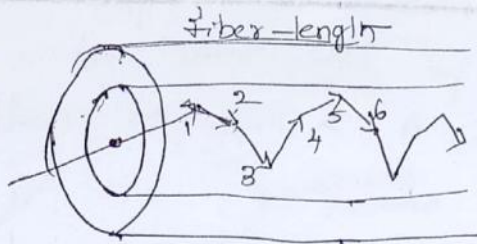 Fiber-length
1 2 3 4 5 6